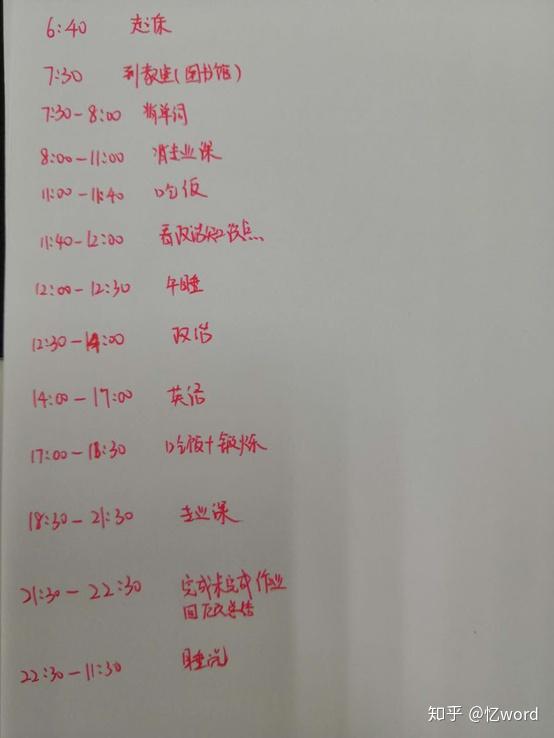 6:40 起床
7:30 到教室(图书馆)
7:30-8:00 背单词
8:00-11:00 背专业课
11:00-11:40 吃饭
11:40-12:00 看政治知识点
12:00-12:30 午睡
12:30-14:00 政治
14:00-17:00 英语
17:00-18:30 吃饭+锻炼
18:30-21:30 专业课
21:30-22:30 完成未完成作业
回顾总结
22:30-11:30 睡觉
知乎 @忆word